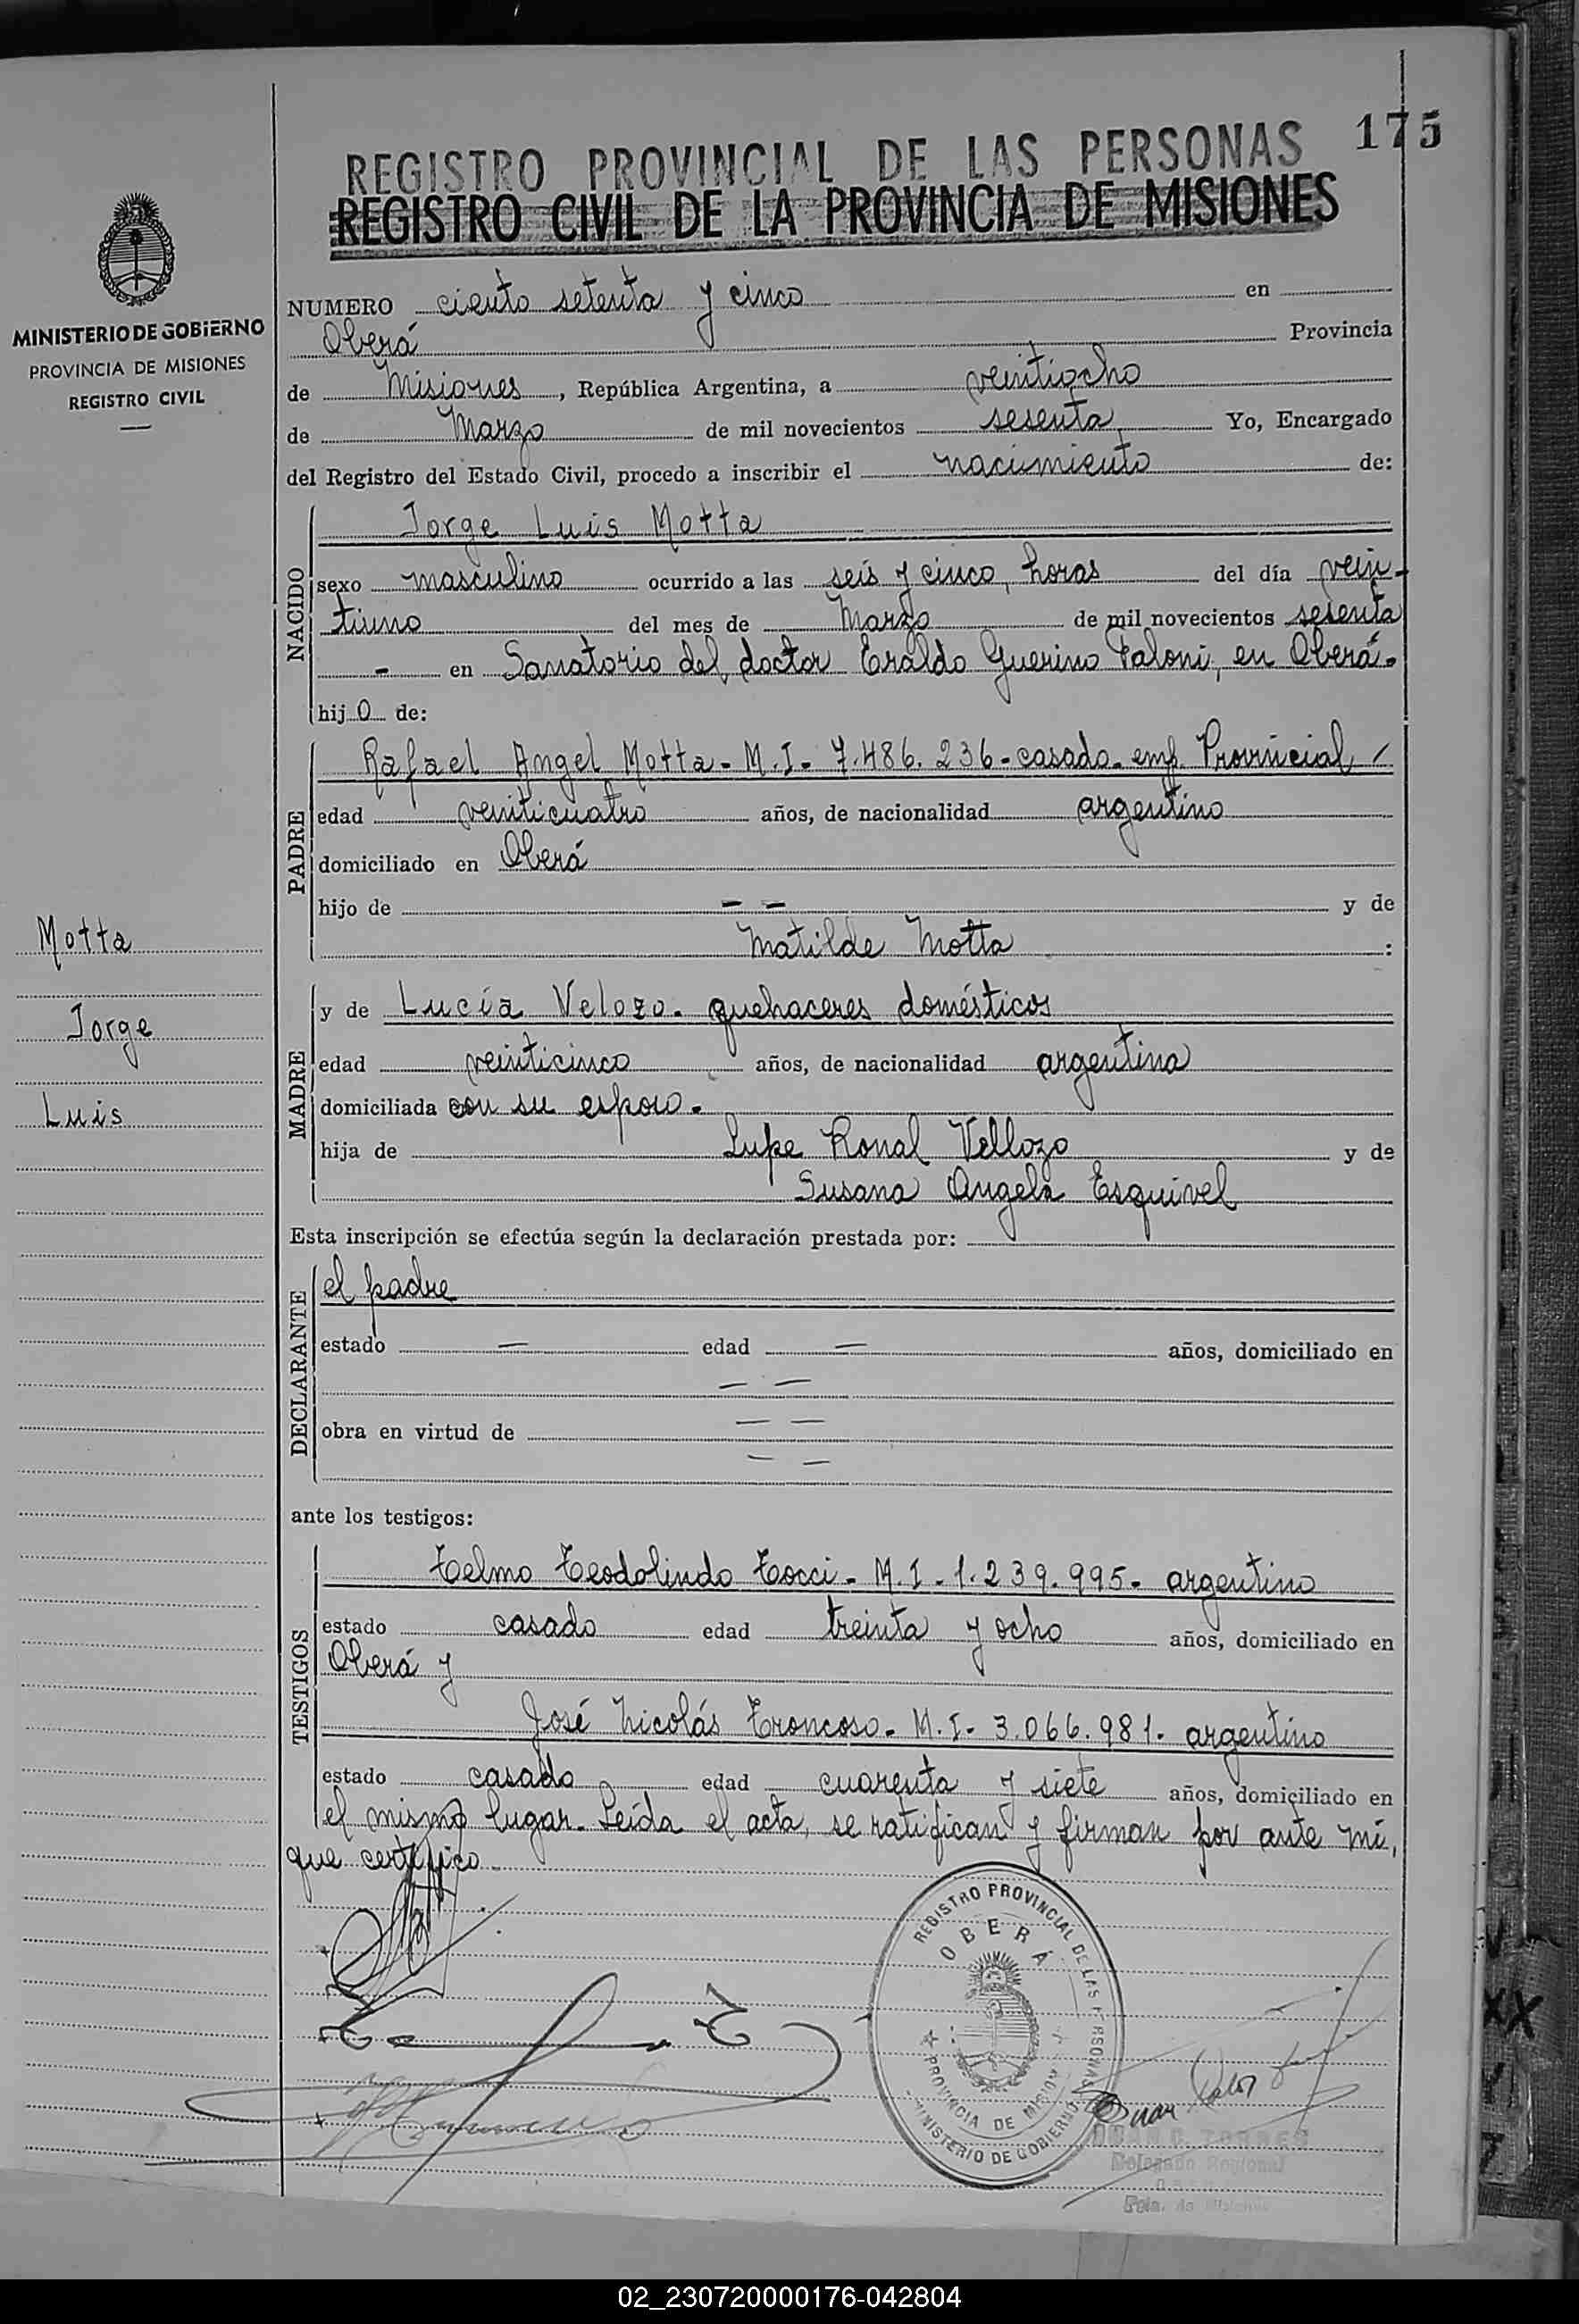 175
REGISTRO PROVINCIAL DE LAS PERSONAS
REGISTRO CIVIL DE LA PROVINCIA DE MISIONES
MINISTERIO DE GOBIERNO
PROVINCIA DE MISIONES
REGISTRO CIVIL
NUMERO ciento setenta y cinco en
Oberá Provincia
de Misiones, República Argentina, a veintiocho
de Marzo de mil novecientos sesenta. Yo, Encargado
del Registro del Estado Civil, procedo a inscribir el nacimiento de:
NACIDO
Jorge Luis Motta
sexo masculino ocurrido a las seis y cinco, horas del día vein-
tiuno del mes de Marzo de mil novecientos sesenta
- en Sanatorio del doctor Eraldo Guerino Paloni, en Oberá.
hijo de:
PADRE
Rafael Angel Motta - M.I- 7.486.236 - casado - emp. Provincial /
edad veinticuatro años, de nacionalidad argentino
domiciliado en Oberá
hijo de - - y de
Matilde Motta :
MADRE
y de Lucía Velozo. quehaceres domésticos
edad veinticinco años, de nacionalidad argentina
domiciliada con su esposo.
hija de Lupe Ronal Vellozo y de
Susana Angela Esquivel
Motta
Jorge
Luis
Esta inscripción se efectúa según la declaración prestada por:
DECLARANTE
el padre
estado — edad — años, domiciliado en
— —
obra en virtud de — —
— —
ante los testigos:
TESTIGOS
Telmo Teodolindo Tocci - M.I - 1.239.995 - argentino
estado casado edad treinta y ocho años, domiciliado en
Oberá y
José Nicolás Troncoso - M.I- 3.066.981- argentino
estado casado edad cuarenta y siete años, domiciliado en
el mismo lugar. Leída el acta, se ratifican y firman por ante mí,
que certifico
REGISTRO PROVINCIAL DE LAS PERSONAS
OBERÁ
PROVINCIA DE MISIONES
MINISTERIO DE GOBIERNO
TORRES
Delegado Regional
Pcia. de Misiones
02_230720000176-042804